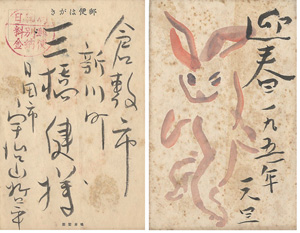 郵便はがき
倉敷市
新川町
三橋健様
日田市
宇治山哲平
迎春
一九五一年
元旦